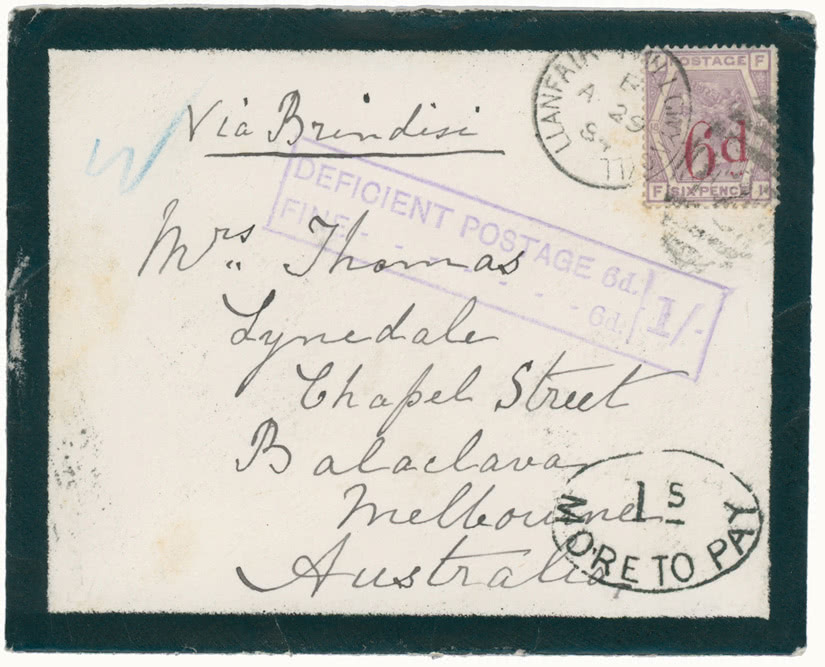 Via Brindisi
LLANFAIR
A
POSTAGE F
6d
F SIX PENCE
DEFICIENT POSTAGE 6d.
FINE - - - - - - - 6d. 1/-
Mrs Thomas
Lynedale
Chapel Street
Balaclava
Melbourne
Australia
1s
MORE TO PAY